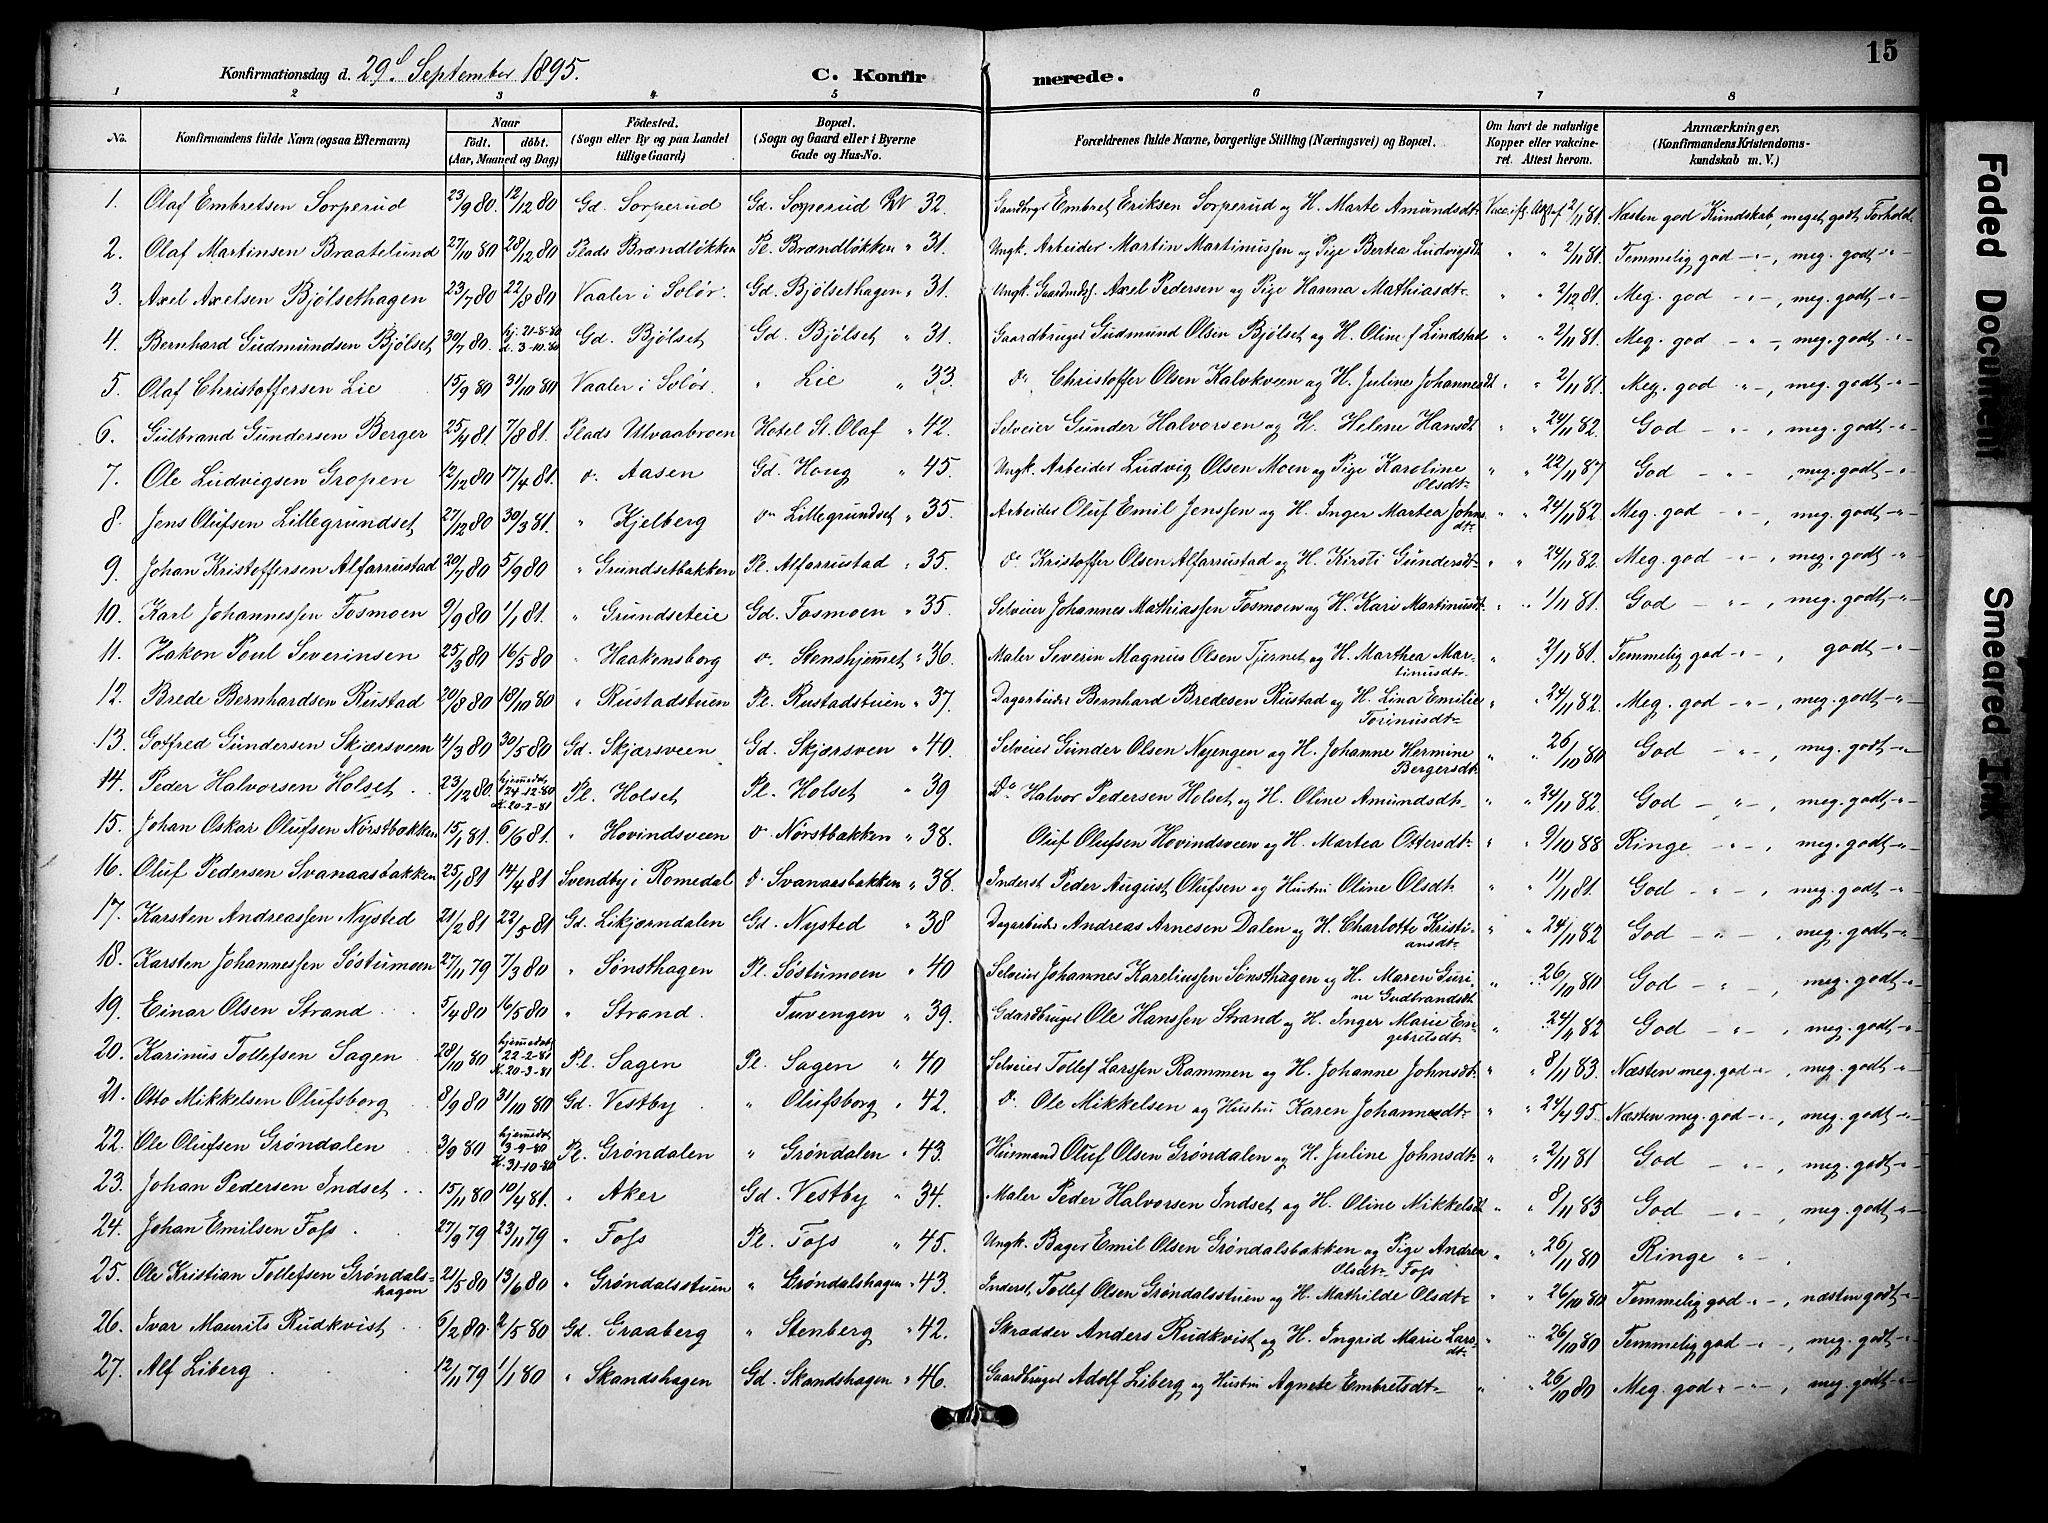 15
Konfirmationsdag d. 29d September 1895. C. Konfirmerede.
1 2 3 4 5 6 7 8
No. Konfirmandens fulde Navn (ogsaa Efternavn) Naar født. døbt. (Aar, Maaned og Dag) Fødested. (Sogn eller By og paa Landet tillige Gaard) Bopæl. (Sogn og Gaard eller i Byerne Gade og Hus-No. Forældrenes fulde Navne, borgerlige Stilling (Næringsvei) og Bopæl. Om havt de naturlige Kopper eller vakcineret. Attest herom. Anmærkninger. (Konfirmandens Kristendomskundskab m. V.)
1. Olaf Embretsen Sorperud 23/9 80. 12/12 80 Gd. Sorperud Gd. Sorperud 32. Gaardbrger Embret Eriksen Sorperud og H. Marte Amundsdt. 2/11 81. Næsten god Kundskab, meget godt Forhold
2. Olaf Martinsen Braatelund 27/10 80 28/12 80 Plads Brændløkken Pl. Brændløkken " 31. Ungk. Arbeider Martin Martinussen og Pige Bertea Ludvigsdt " " 2/11 81. Temmelig god -"-, meg. godt -"-
3. Axel Axelsen Bjølsethagen 23/7 80 22/8 80 Vaaler i Solør. Gd. Bjølsethagen " 31. Ungk. Gaardmdsf. Axel Pedersen og Pige Hanna Mathiasdt. " " 2/12 81. Meg. god -"-, meg. godt -"-
4. Bernhard Gudmundsen Bjølset 30/7 80. hj. 21-8-80 K. 3-10-80 Gd. Bjølset Gd. Bjølset " 31. Gaardbruger Gudmund Olsen Bjølset og H. Oline f. Lindstad " " 2/11 81. Meg. god -"-, meg. godt -"-
5. Olaf Christoffersen Lie 15/9 80 31/10 80 Vaaler i Solør. " Lie " 33. do Christoffer Olsen Kalvkveen og H. Juline Johannesdt " " 2/11 81. Meg. god -"-, meg. godt -"-
6. Gulbrand Gundersen Berger 25/4 81 7/8 81. Plads Ulvaabroen Hotel St. Olaf " 42. Selveier Gunder Halvorsen og H. Helene Hansdt " " 24/11 82. God -"-, meg. godt -"-
7. Ole Ludvigsen Gropen 12/12 80 17/4 81. do. Aasen Gd. Houg " 45. Ungk. Arbeider Ludvig Olsen Moen og Pige Karoline Olsdt. " " 22/11 87 God -"-, meg. godt -"-
8. Jens Olufsen Lillegrundset 27/12 80 30/3 81. " Kjelberg do Lillegrundset " 35. Arbeider Oluf Emil Jenssen og H. Inger Martea Johnsdt. " " 24/11 82. Meg. god -"-, meg. godt -"-
9. Johan Kristoffersen Alfarrustad 20/7 80 5/9 80 " Grundsetbakken Pl. Alfarrustad " 35. do Kristoffer Olsen Alfarrustad og H. Kirsti Gundersdt. " " 24/11 82. Meg. god -"-, meg. godt -"-
10. Karl Johannessen Fosmoen 9/9 80 1/1 81. " Grundseteie Gd. Fosmoen " 35. Selveier Johannes Mathiassen Fosmoen og H. Kari Martinusdt. " " 1/11 81. God -"-, meg. godt -"-
11. Hakon Poul Severinsen 25/3 80 16/5 80 " Haakensborg do. Stenshjemmet " 36. Maler Severin Magnus Olsen Tjernet og H. Marthea Martinusdt. " " 2/11 81. Temmelig god -"-, godt -"-
12. Brede Bernhardsen Rustad 20/8 80 18/10 80 " Rustadstuen Pl. Rustadstuen " 37. Dagarbeider Bernhard Bredesen Rustad og H. Lina Emilie Torinusdt. " " 24/11 82. Meg. god -"-, meg. godt -"-
13. Gotfred Gundersen Skjærsveen 4/3 80 30/5 80 Gd. Skjærsveen Gd. Skjærsven " 40. Selveier Gunder Olsen Nyengen og H. Johanne Hermine Bergersdt. " " 26/10 80 God -"-, meg. godt -"-
14. Peder Halvorsen Holset 23/12 80. hjemmedøbt 24-12-80 K. 20-2-81 Pl. Holset Pl. Holset " 39 Do Halvor Pedersen Holset og H. Oline Amundsdt. " " 24/11 82. God -"-, meg. godt -"-
15. Johan Oskar Olufsen Nørstbakken 15/1 81. 6/6 81. " Hovindsveen do. Nørstbakken " 38. Oluf Olufsen Hovindsveen og H. Martea Ottersdt. " " 9/10 88 Ringe -"-, meg. godt -"-
16. Oluf Pedersen Svanaasbakken 25/1 81 14/4 81 Svendby i Romedal do Svanaasbakken " 38. Inderst Peder August Olufsen og Hustru Oline Olsdt. " " 11/11 81. God -"-, meg. godt -"-
17. Karsten Andreassen Nysted 21/2 81 22/5 81 Gd. Likjærndalen Gd. Nysted " 38 Dagarbeider Andreas Arnesen Dalen og H. Charlotte Kristiansdt. " " 24/11 82 God -"-, meg. godt -"-
18. Karsten Johannessen Søstumoen 27/11 79 7/3 80 " Sønsthagen Pl. Søstumoen " 40 Selveier Johannes Kareliussen Sønsthagen og H. Maren Gurine Gudbrandsdt " " 26/10 80 God -"-, meg. godt -"-
19. Einar Olsen Strand 5/4 80 16/5 80 " Strand. Tuvengen " 39. Gdardbruger Ole Hanssen Strand og H. Inger Marie Engebretsdt. " " 24/11 82 God -"-, meg. godt -"-
20. Karinus Tollefsen Sagen 28/10 80 hjemmedøbt 22-2-81 K. 20-3-81 Pl. Sagen Pl. Sagen " 40 Selveier Tollef Larssen Rammen og H. Johanne Johnsdt. " " 8/11 83. Næsten meg. god -"-, meg. godt -"-
21. Otto Mikkelsen Olufsborg 8/9 80 31/10 80 Gd. Vestby " Olufsborg " 42. do. Ole Mikkelsen og Hustru Karen Johannesdt. " " 24/4 95. Næsten meg. god -"-, meg. godt -"-
22. Ole Olufsen Grøndalen 3/9 80 hjemmedøbt 3-9-80 K. 31-10-80 Pl. Grøndalen " Grøndalen " 43. Husmand Oluf Olsen Grøndalen og H. Juline Johnsdt. " " 2/11 81 God -"-, meg. godt -"-
23. Johan Pedersen Indset 15/11 80 10/4 81. " Aker Gd. Vestby " 34. Maler Peder Halvorsen Indset og H. Oline Mikkelsdt " " 8/11 83 God -"-, meg. godt -"-
24. Johan Emilsen Foss 27/9 79 23/11 79 " Foss Pl. Foss " 45. Ungk. Bager Emil Olsen Grøndalsbakken og Pige Andrea Olsdt. Foss " " 26/11 80 Ringe " -
25. Ole Kristian Tollefsen Grøndalshagen 21/5 80 13/6 80 " Grøndalsstuen " Grøndalshagen " 43. Inderst Tollef Olsen Grøndalsstuen og H. Mathilde Olsdt. " " 26/10 80 Temmelig god -"-, næsten godt -"-
26. Ivar Maurits Rudkvist 6/2 80. 2/5 80 Gd. Graaberg " Stenberg " 42. Skrædder Anders Rudkvist og H. Ingrid Marie Larsdt. " " 26/10 80 Temmelig god -"-, meg. godt -"-
27. Alf Liberg 12/11 79 1/1 80 " Skandshagen Gd. Skandshagen " 46. Gaardbruger Adolf Liberg og Hustru Agnete Embretsdt. " " 26/10 80 Meg. god -"-, meg. godt -"-
Faded Document
Smeared Ink